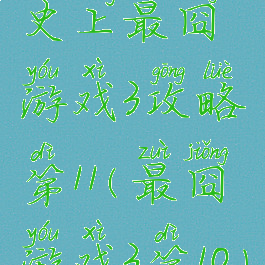 史上最囧
yóu xì gōng lüè
游戏3攻略
dì zuì jiǒng
第11(最囧
yóu xì dì
游戏3第10)